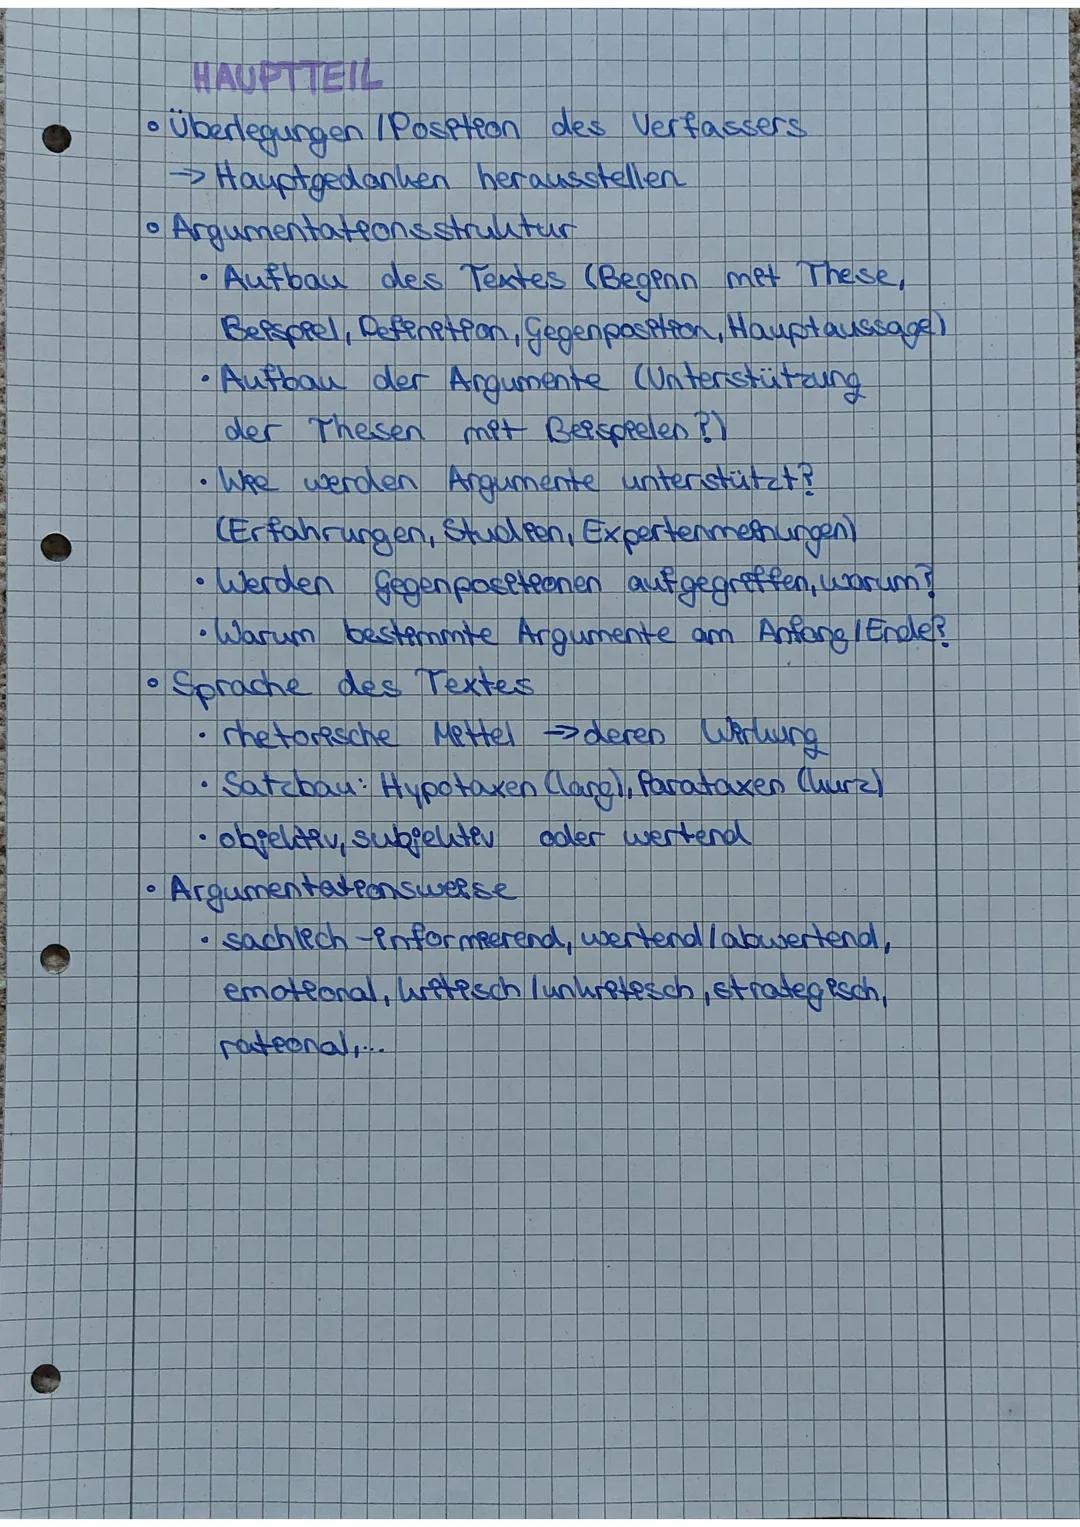 HAUPTTEIL
∘ Überlegungen / Position des Verfassers
→ Hauptgedanken herausstellen
∘ Argumentationsstruktur
• Aufbau des Textes (Beginn mit These,
Beispiel, Definition, Gegenposition, Hauptaussage)
• Aufbau der Argumente (Unterstützung
der Thesen mit Beispielen?)
• Wie werden Argumente unterstützt?
(Erfahrungen, Studien, Expertenmeinungen)
• Werden Gegenpositionen aufgegriffen, warum?
• Warum bestimmte Argumente am Anfang / Ende?
∘ Sprache des Textes
• rhetorische Mittel → deren Wirkung
• Satzbau: Hypotaxen (lang), Parataxen (kurz)
• objektiv, subjektiv oder wertend
∘ Argumentationsweise
• sachlich-informierend, wertend / abwertend,
emotional, kritisch / unkritisch, strategisch,
rational,...